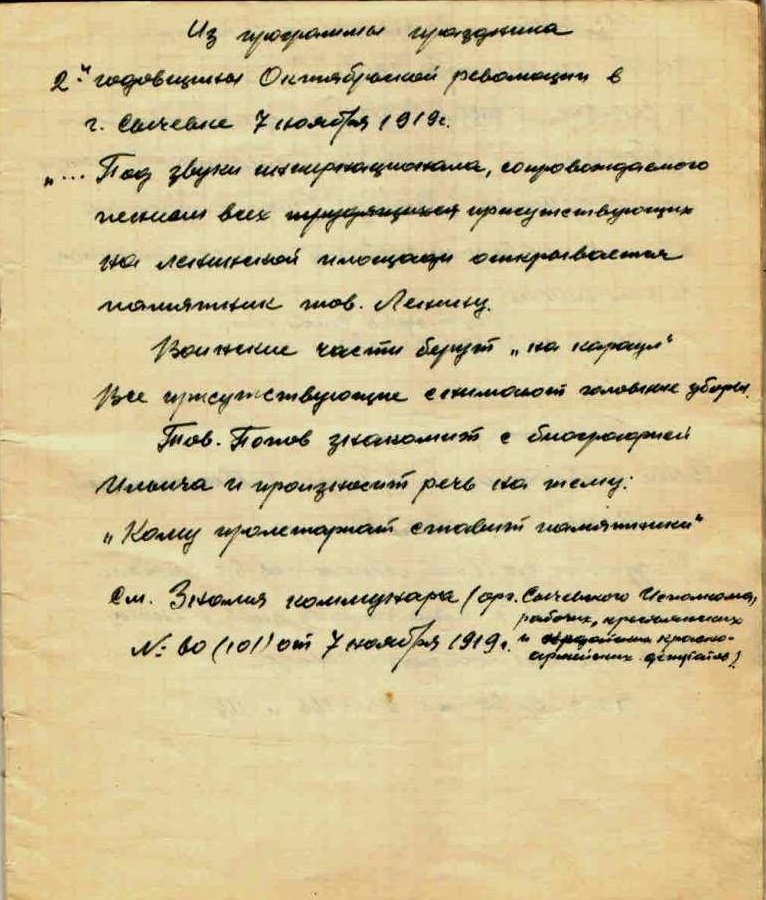 Из программы праздника
2-й годовщины Октябрьской революции в
г. Сычевке 7 ноября 1919 г.
„... Под звуки интернационала, сопровождаемого
пением всех трудящихся присутствующих
на ленинской площади открывается
памятник тов. Ленину.
Воинские части берут „на караул“
Все присутствующие снимают головные уборы.
Тов. Попов знакомит с биографией
Ильича и произносит речь на тему:
„Кому пролетариат ставит памятники“
См. Знамя коммунара (орг. Сычевского Исполкома,
рабочих, крестьянских
и красно-
армейских депутатов)
№ 60 (101) от 7 ноября 1919 г.